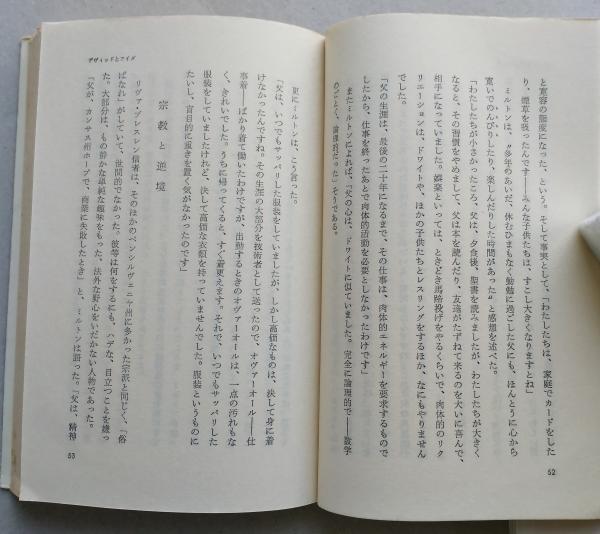 と寛容の態度になった、という。そして事実として、「わたしたちは、家庭でカードをした
り、煙草を吸ったんです――みんな子供たちは、すこし大きくなりますとね」
ミルトンは、〝多年のあいだ、休むひまもなく勉勉に過ごした父にも、ほんとうに心から
寛いでのんびりしたり、楽しんだりした時間があった〟と感想を述べた。
「わたしたちが小さかったころ、父は、夕食後、聖書を読みましたが、わたしたちが大きく
なると、その習慣をやめまして、父は本を読んだり、友達がたずねて来るのを大いに喜んで、
相手になっていました。娯楽といっては、ときどき馬蹄投げをやるくらいで、肉体的のリク
リエーションは、ドワイトや、ほかの子供たちとレスリングをするほか、なにもやりません
でした。
「父の生涯は、最後の二十年になるまで、その仕事は、肉体的エネルギーを要求するもので
したから、仕事を終ったあとで肉体的活動を必要としなかったわけです」
またミルトンによれば、「父の心は、ドワイトに似ていました。完全に論理的で――数学
のごとく、論理的だった」そうである。
52
デヴィッドとアイダ
更にミルトンは、こう言った。
「父は、いつでもサッパリした服装をしていましたが、しかし高価なものは、決して身に着
けなかったんですね。その生涯の大部分を技術者として送ったので、オヴァーオール――仕
事着――ばかり着て働いたわけですが、出勤するときのオヴァーオールは、一点の汚れもな
く、きれいでした。うちに帰ってくると、すぐ着更えます。それで、いつでもサッパリした
服装をしていましたけれど、決して高価な衣類を持っていませんでした。服装というものに
たいし、盲目的に重きを置く気がなかったのです」
宗教と逆境
リヴァ・ブレスレン信者は、そのほかのペンシルヴェニヤ州に多かった宗派と同じく、「俗
ばなれ」がしていて、世間的でなかった。彼等は何をするにも、ハデな、目立つことを嫌っ
た。大部分は、もの静かな単純な趣味をもった、法外な野心をいだかない人物であった。
「父が、カンサス州ホープで、商業に失敗したとき」と、ミルトンは語った。「父は、精神
53